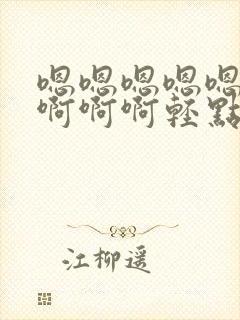 嗯嗯嗯嗯嗯
啊啊啊輕點
江柳遥